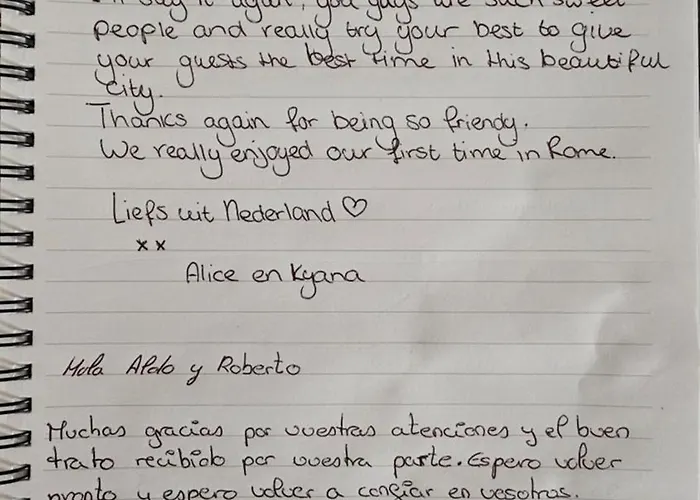 say it again, you guys are such sweet
people and really try your best to give
your guests the best time in this beautiful
city.
Thanks again for being so friendy.
We really enjoyed our first time in Rome.
Liefs uit Nederland ♡
x x
Alice en Kyana
Hola Aldo y Roberto
Muchas gracias por vuestras atenciones y el buen
trato recibido por vuestra parte. Espero volver
pronto y espero volver a confiar en vosotros.